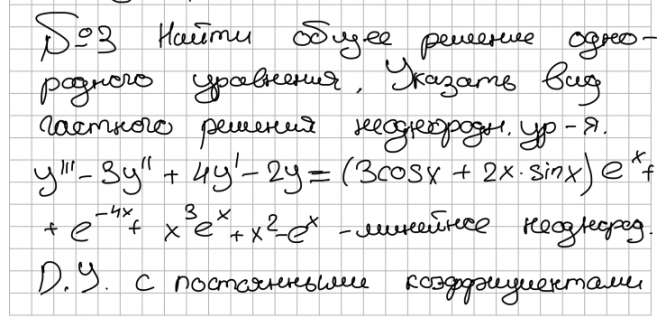 №3 Найти общее решение одно-
родного уравнения. Указать вид
частного решения неоднородн. ур-я.
y''' - 3y'' + 4y' - 2y = (3cosx + 2x·sinx) e^x +
+ e^{-4x} + x^3 e^x + x^2 - e^x - линейное неоднород.
D.У. с постоянными коэффициентами